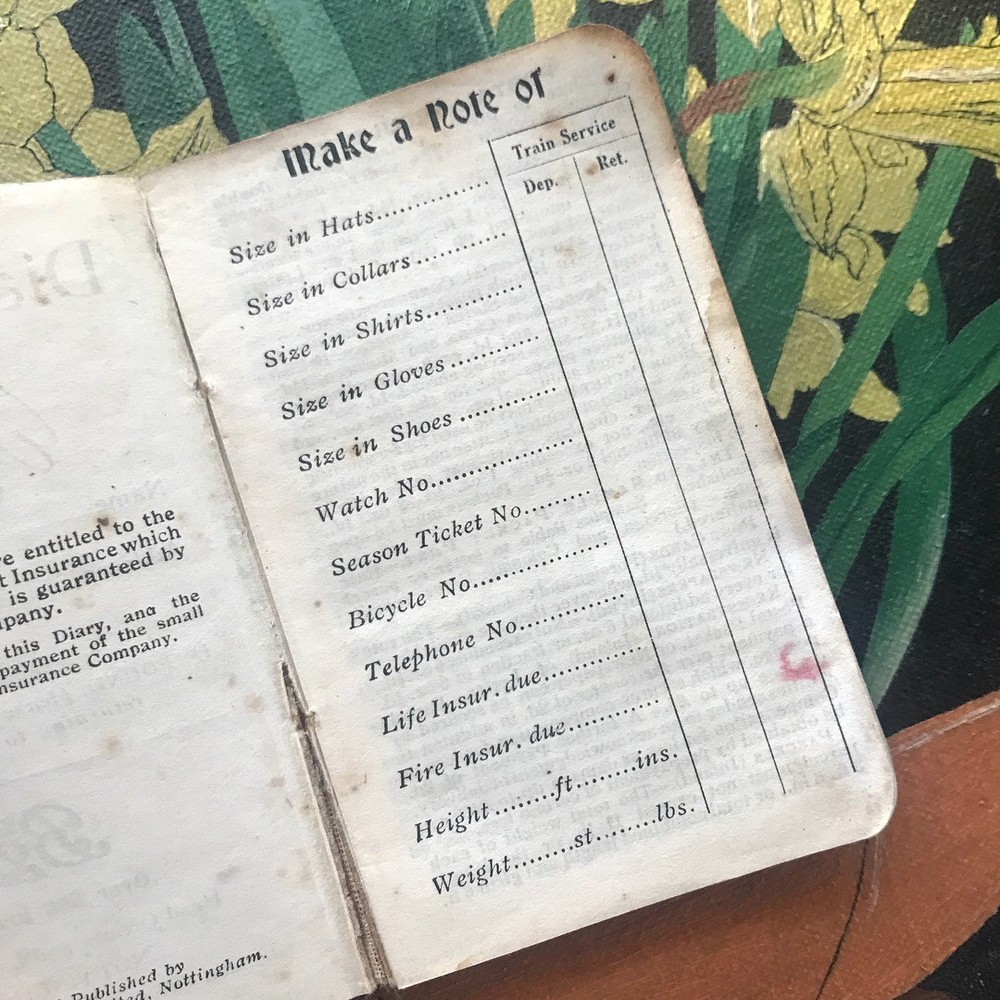 entitled to the
Insurance which
is guaranteed by
this Diary, and the
payment of the small
Insurance Company.
Published by
Nottingham.
Make a Note of
Train Service
Dep. Ret.
Size in Hats...............
Size in Collars............
Size in Shirts.............
Size in Gloves............
Size in Shoes.............
Watch No...................
Season Ticket No.......
Bicycle No.................
Telephone No.............
Life Insur. due............
Fire Insur. due............
Height........ft........ins.
Weight........st........lbs.